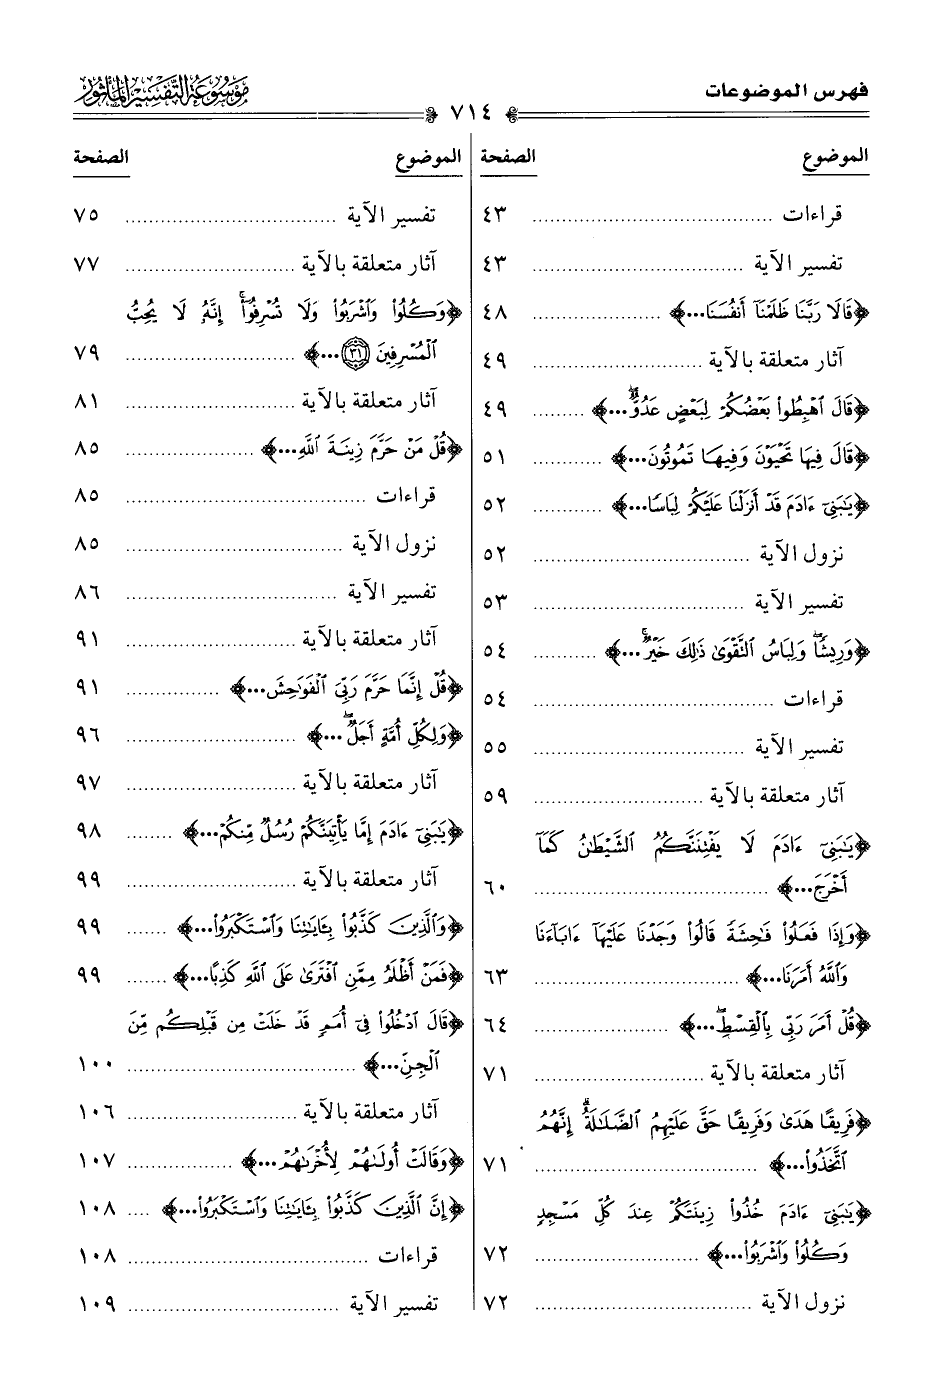 فهرس الموضوعات
٧١٤
موسوعة التفسير المأثور
الموضوع الصفحة
قراءات ........ ٤٣
تفسير الآية ........ ٤٣
﴿قَالَا رَبَّنَا ظَلَمْنَآ أَنفُسَنَا...﴾ ........ ٤٨
آثار متعلقة بالآية ........ ٤٩
﴿قَالَ ٱهْبِطُوا۟ بَعْضُكُمْ لِبَعْضٍ عَدُوٌّۖ...﴾ ........ ٤٩
﴿قَالَ فِيهَا تَحْيَوْنَ وَفِيهَا تَمُوتُونَ...﴾ ........ ٥١
﴿يَٰبَنِىٓ ءَادَمَ قَدْ أَنزَلْنَا عَلَيْكُمْ لِبَاسًا...﴾ ........ ٥٢
نزول الآية ........ ٥٢
تفسير الآية ........ ٥٣
﴿وَرِيشًاۖ وَلِبَاسُ ٱلتَّقْوَىٰ ذَٰلِكَ خَيْرٌۚ...﴾ ........ ٥٤
قراءات ........ ٥٤
تفسير الآية ........ ٥٥
آثار متعلقة بالآية ........ ٥٩
﴿يَٰبَنِىٓ ءَادَمَ لَا يَفْتِنَنَّكُمُ ٱلشَّيْطَٰنُ كَمَآ
أَخْرَجَ...﴾ ........ ٦٠
﴿وَإِذَا فَعَلُوا۟ فَٰحِشَةً قَالُوا۟ وَجَدْنَا عَلَيْهَآ ءَابَآءَنَا
وَٱللَّهُ أَمَرَنَا...﴾ ........ ٦٣
﴿قُلْ أَمَرَ رَبِّى بِٱلْقِسْطِۖ...﴾ ........ ٦٤
آثار متعلقة بالآية ........ ٧١
﴿فَرِيقًا هَدَىٰ وَفَرِيقًا حَقَّ عَلَيْهِمُ ٱلضَّلَٰلَةُۗ إِنَّهُمُ
ٱتَّخَذُوا۟...﴾ ........ ٧١
﴿يَٰبَنِىٓ ءَادَمَ خُذُوا۟ زِينَتَكُمْ عِندَ كُلِّ مَسْجِدٍ
وَكُلُوا۟ وَٱشْرَبُوا۟...﴾ ........ ٧٢
نزول الآية ........ ٧٢
الموضوع الصفحة
تفسير الآية ........ ٧٥
آثار متعلقة بالآية ........ ٧٧
﴿وَكُلُوا۟ وَٱشْرَبُوا۟ وَلَا تُسْرِفُوٓا۟ۚ إِنَّهُۥ لَا يُحِبُّ
ٱلْمُسْرِفِينَ ٣١...﴾ ........ ٧٩
آثار متعلقة بالآية ........ ٨١
﴿قُلْ مَنْ حَرَّمَ زِينَةَ ٱللَّهِ...﴾ ........ ٨٥
قراءات ........ ٨٥
نزول الآية ........ ٨٥
تفسير الآية ........ ٨٦
آثار متعلقة بالآية ........ ٩١
﴿قُلْ إِنَّمَا حَرَّمَ رَبِّىَ ٱلْفَوَٰحِشَ...﴾ ........ ٩١
﴿وَلِكُلِّ أُمَّةٍ أَجَلٌۖ...﴾ ........ ٩٦
آثار متعلقة بالآية ........ ٩٧
﴿يَٰبَنِىٓ ءَادَمَ إِمَّا يَأْتِيَنَّكُمْ رُسُلٌ مِّنكُمْ...﴾ ........ ٩٨
آثار متعلقة بالآية ........ ٩٩
﴿وَٱلَّذِينَ كَذَّبُوا۟ بِـَٔايَٰتِنَا وَٱسْتَكْبَرُوا۟...﴾ ....... ٩٩
﴿فَمَنْ أَظْلَمُ مِمَّنِ ٱفْتَرَىٰ عَلَى ٱللَّهِ كَذِبًا...﴾ ....... ٩٩
﴿قَالَ ٱدْخُلُوا۟ فِىٓ أُمَمٍ قَدْ خَلَتْ مِن قَبْلِكُم مِّنَ
ٱلْجِنِّ...﴾ ........ ١٠٠
آثار متعلقة بالآية ........ ١٠٦
﴿وَقَالَتْ أُولَىٰهُمْ لِأُخْرَىٰهُمْ...﴾ ........ ١٠٧
﴿إِنَّ ٱلَّذِينَ كَذَّبُوا۟ بِـَٔايَٰتِنَا وَٱسْتَكْبَرُوا۟...﴾ .... ١٠٨
قراءات ........ ١٠٨
تفسير الآية ........ ١٠٩